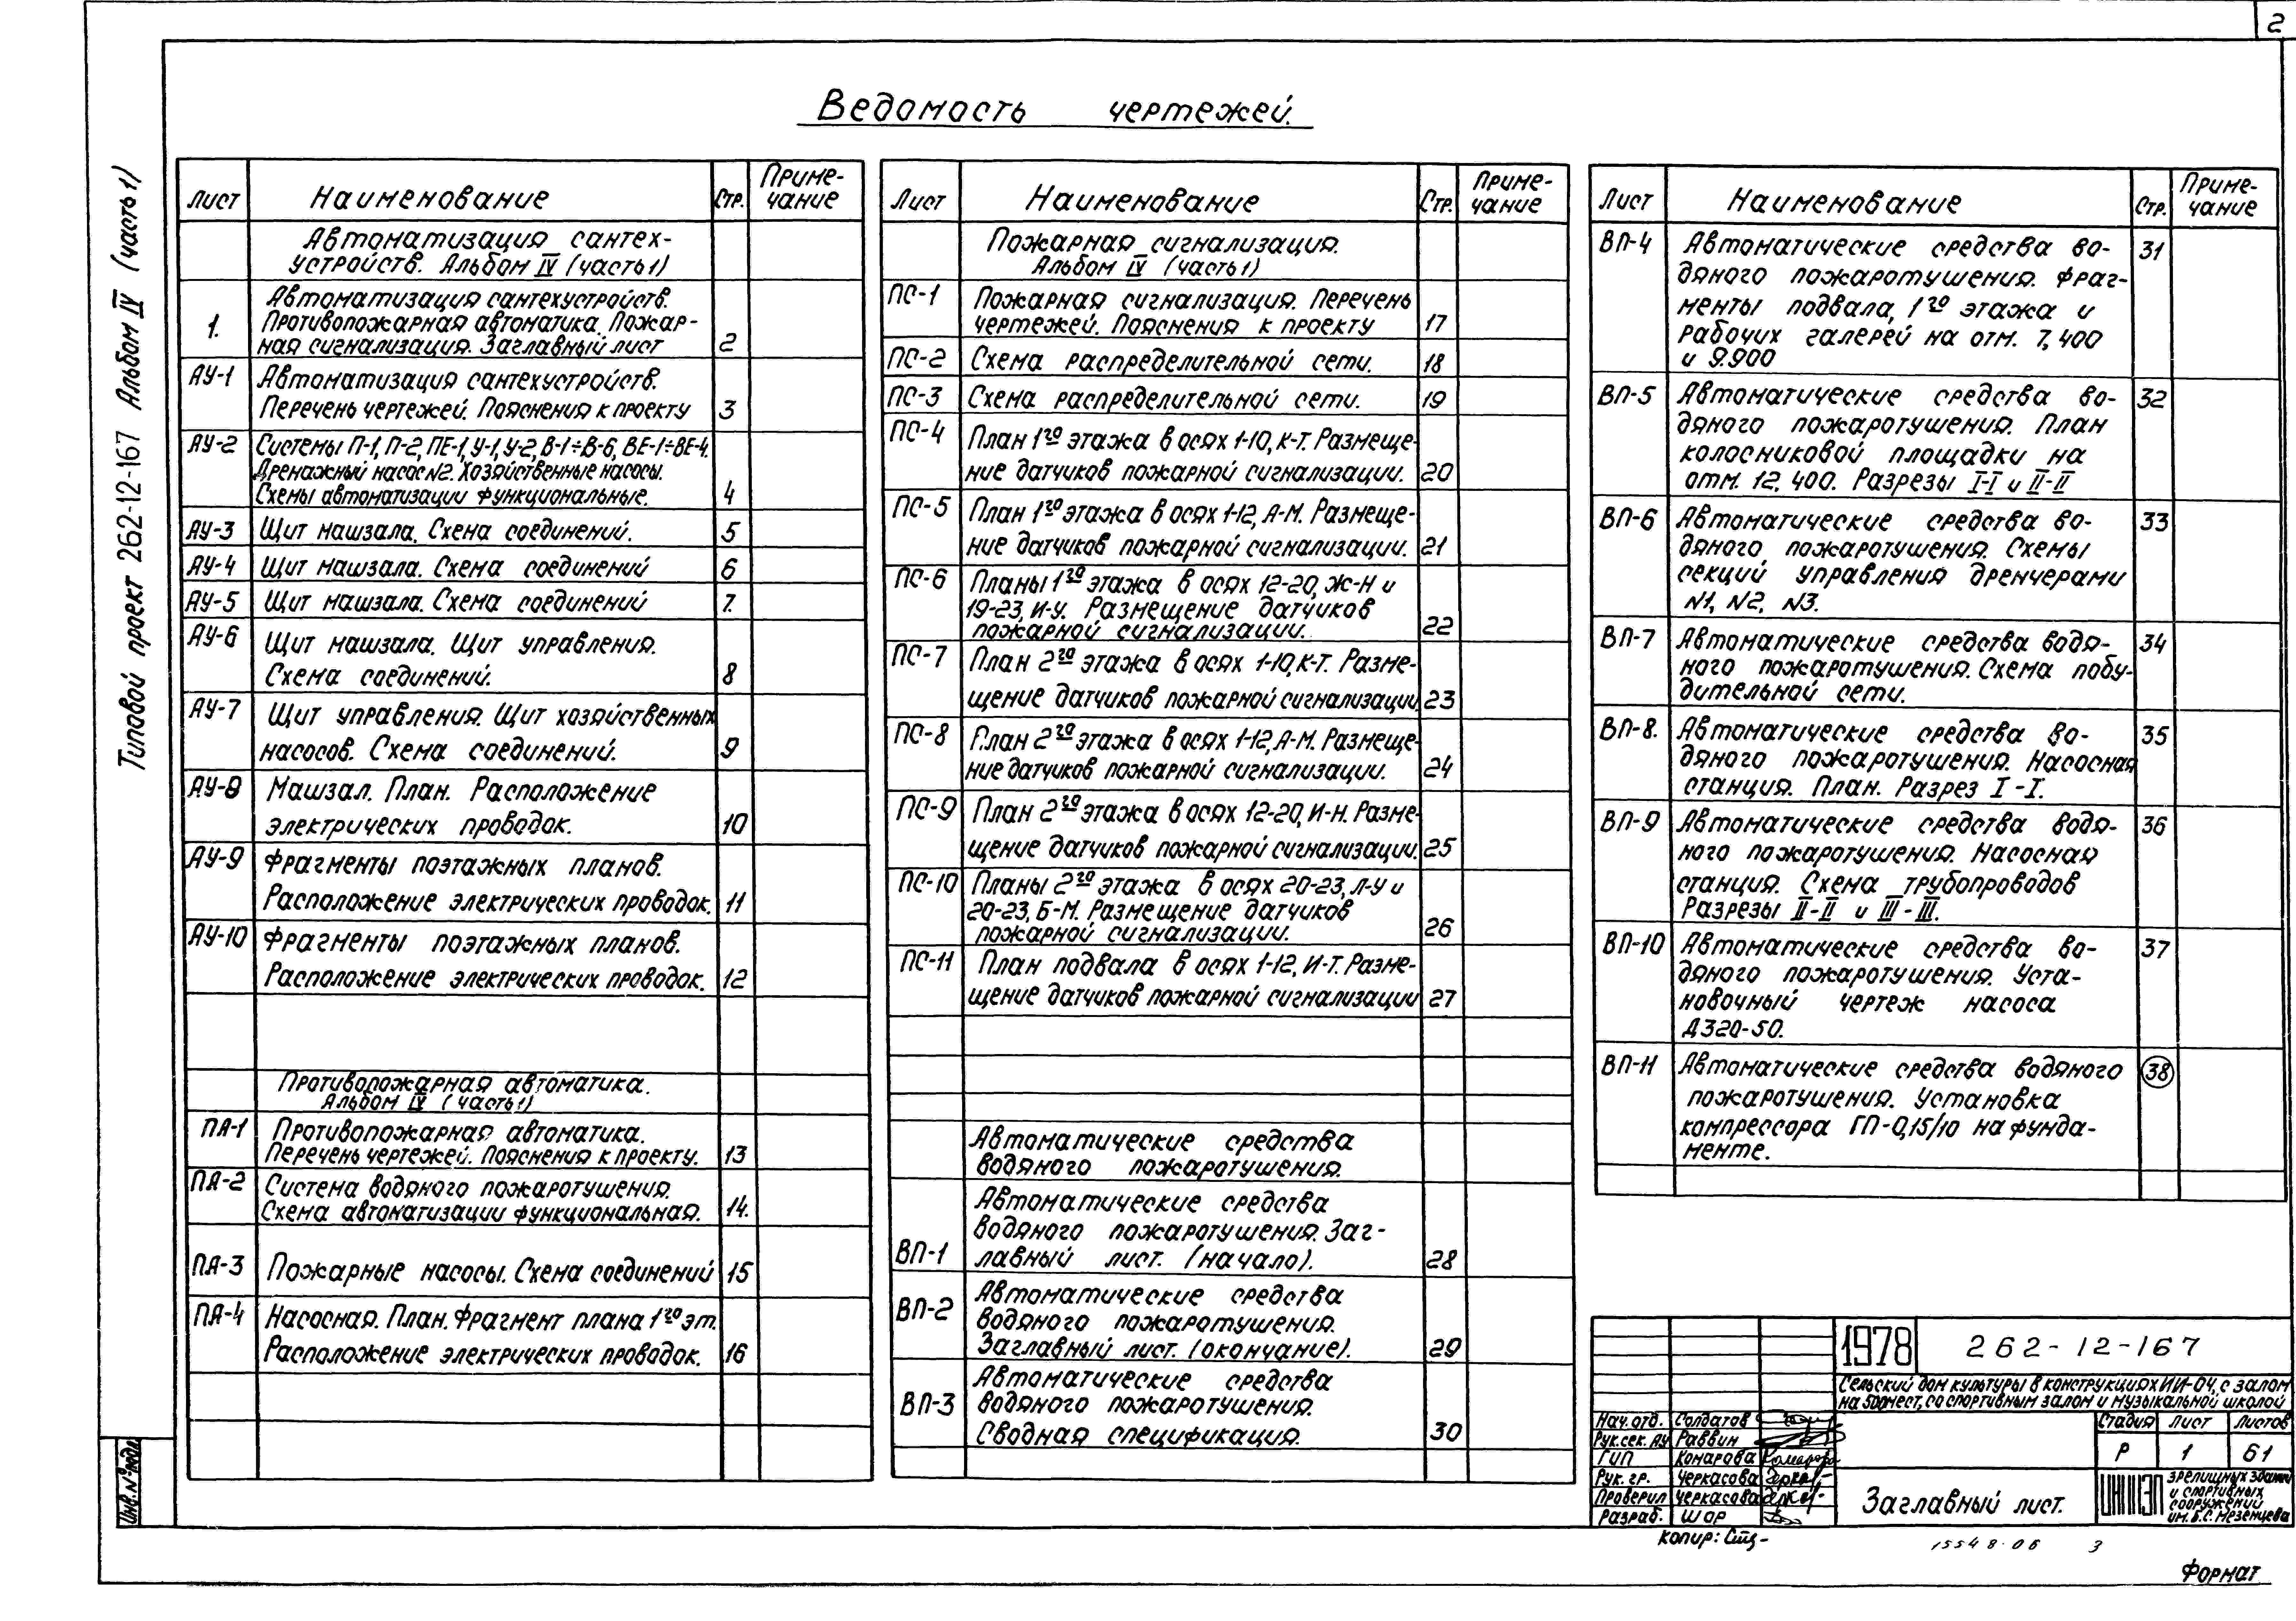 2
Ведомость чертежей.
Типовой проект 262-12-167 Альбом IV (часть 1)
Лист Наименование Стр. Приме-
чание
Автоматизация сантех-
устройств. Альбом IV (часть 1)
1. Автоматизация сантехустройств.
Противопожарная автоматика. Пожар-
ная сигнализация. Заглавный лист 2
АУ-1 Автоматизация сантехустройств.
Перечень чертежей. Пояснения к проекту 3
АУ-2 Системы П-1, П-2, ПЕ-1, У-1, У-2, В-1÷В-6, ВЕ-1÷ВЕ-4.
Дренажный насос №2. Хозяйственные насосы.
Схемы автоматизации функциональные. 4
АУ-3 Щит машзала. Схема соединений. 5
АУ-4 Щит машзала. Схема соединений 6
АУ-5 Щит машзала. Схема соединений 7.
АУ-6 Щит машзала. Щит управления.
Схема соединений. 8
АУ-7 Щит управления. Щит хозяйственных
насосов. Схема соединений. 9
АУ-8 Машзал. План. Расположение
электрических проводок. 10
АУ-9 Фрагменты поэтажных планов.
Расположение электрических проводок. 11
АУ-10 Фрагменты поэтажных планов.
Расположение электрических проводок. 12
Противопожарная автоматика.
Альбом IV (часть 1)
ПА-1 Противопожарная автоматика.
Перечень чертежей. Пояснения к проекту. 13
ПА-2 Система водяного пожаротушения.
Схема автоматизации функциональная. 14.
ПА-3 Пожарные насосы. Схема соединений 15
ПА-4 Насосная. План. Фрагмент плана 1го эт.
Расположение электрических проводок. 16
Лист Наименование Стр. Приме-
чание
Пожарная сигнализация.
Альбом IV (часть 1)
ПС-1 Пожарная сигнализация. Перечень
чертежей. Пояснения к проекту 17
ПС-2 Схема распределительной сети. 18
ПС-3 Схема распределительной сети. 19
ПС-4 План 1го этажа в осях 1-10, К-Т. Размеще-
ние датчиков пожарной сигнализации. 20
ПС-5 План 1го этажа в осях 1-12, А-М. Размеще-
ние датчиков пожарной сигнализации. 21
ПС-6 Планы 1го этажа в осях 12-20, Ж-Н и
19-23, И-У. Размещение датчиков
пожарной сигнализации. 22
ПС-7 План 2го этажа в осях 1-10, К-Т. Разме-
щение датчиков пожарной сигнализации. 23
ПС-8 План 2го этажа в осях 1-12, А-М. Размеще-
ние датчиков пожарной сигнализации. 24
ПС-9 План 2го этажа в осях 12-20, И-Н. Разме-
щение датчиков пожарной сигнализации. 25
ПС-10 Планы 2го этажа в осях 20-23, Л-У и
20-23, Б-М. Размещение датчиков
пожарной сигнализации. 26
ПС-11 План подвала в осях 1-12, И-Т. Разме-
щение датчиков пожарной сигнализации 27
Автоматические средства
водяного пожаротушения.
Автоматические средства
водяного пожаротушения. Заг-
ВП-1 лавный лист. (начало). 28
ВП-2 Автоматические средства
водяного пожаротушения.
Заглавный лист. (окончание). 29
Автоматические средства
ВП-3 водяного пожаротушения.
Сводная спецификация. 30
Лист Наименование Стр. Приме-
чание
ВП-4 Автоматические средства во- 31
дяного пожаротушения. Фраг-
менты подвала, 1го этажа и
рабочих галерей на отм. 7,400
и 9.900
ВП-5 Автоматические средства во- 32
дяного пожаротушения. План
колосниковой площадки на
отм. 12.400. Разрезы I-I и II-II
ВП-6 Автоматические средства во- 33
дяного пожаротушения. Схемы
секций управления дренчерами
№1, №2, №3.
ВП-7 Автоматические средства водя- 34
ного пожаротушения. Схема побу-
дительной сети.
ВП-8. Автоматические средства во- 35
дяного пожаротушения. Насосная
станция. План. Разрез I-I.
ВП-9 Автоматические средства водя- 36
ного пожаротушения. Насосная
станция. Схема трубопроводов
Разрезы II-II и III-III.
ВП-10 Автоматические средства во- 37
дяного пожаротушения. Уста-
новочный чертеж насоса
Д320-50.
ВП-11 Автоматические средства водяного 38
пожаротушения. Установка
компрессора ГП-0,15/10 на фунда-
менте.
1978 262-12-167
Сельский дом культуры в конструкциях ИИ-04, с залом
на 500 мест, со спортивным залом и музыкальной школой
Нач. отд. Солдатов
Рук. сек. АУ Раввин
ГИП Комарова
Рук. гр. Черкасова
Проверил Черкасова
Разраб. Шор
Стадия Лист Листов
Р 1 61
Заглавный лист.
ЦНИИЭП зрелищных зданий
и спортивных
сооружений
им. Б.С. Мезенцева
Инв. № подл.
Копир:
15548-06 3
Формат